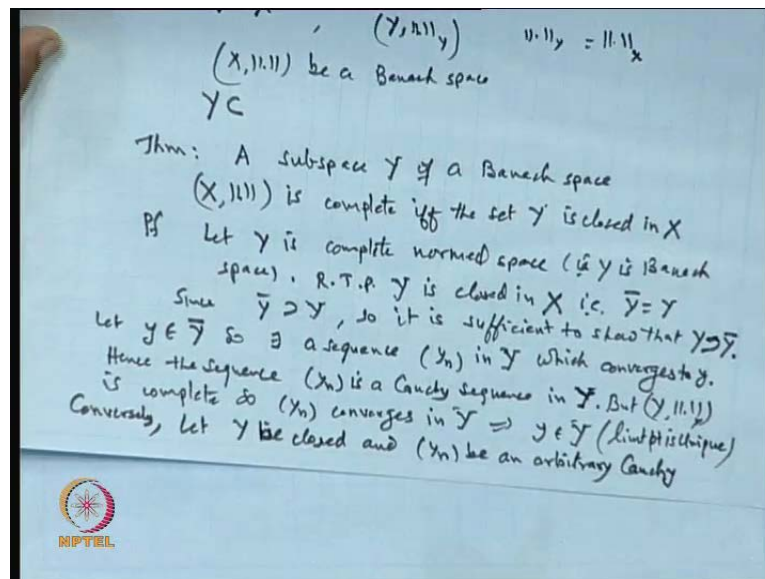 , (Y, ||.||_y) ||.||_y = ||.||_x
(X, ||.||) be a Banach space
Y ⊂
Thm: A subspace Y of a Banach space
(X, ||.||) is complete iff the set Y is closed in X
Pf Let Y is complete normed space (ie Y is Banach
space). R.T.P. Y is closed in X i.e. Ȳ = Y
Since Ȳ ⊃ Y, so it is sufficient to show that Y ⊃ Ȳ.
Let y ∈ Ȳ so ∃ a sequence (yn) in Y which converges to y.
Hence the sequence (yn) is a Cauchy sequence in Y. But (Y, ||.||)
is complete so (yn) converges in Y ⇒ y ∈ Y (limit pt is unique)
Conversely, Let Y be closed and (yn) be an arbitrary Cauchy
NPTEL